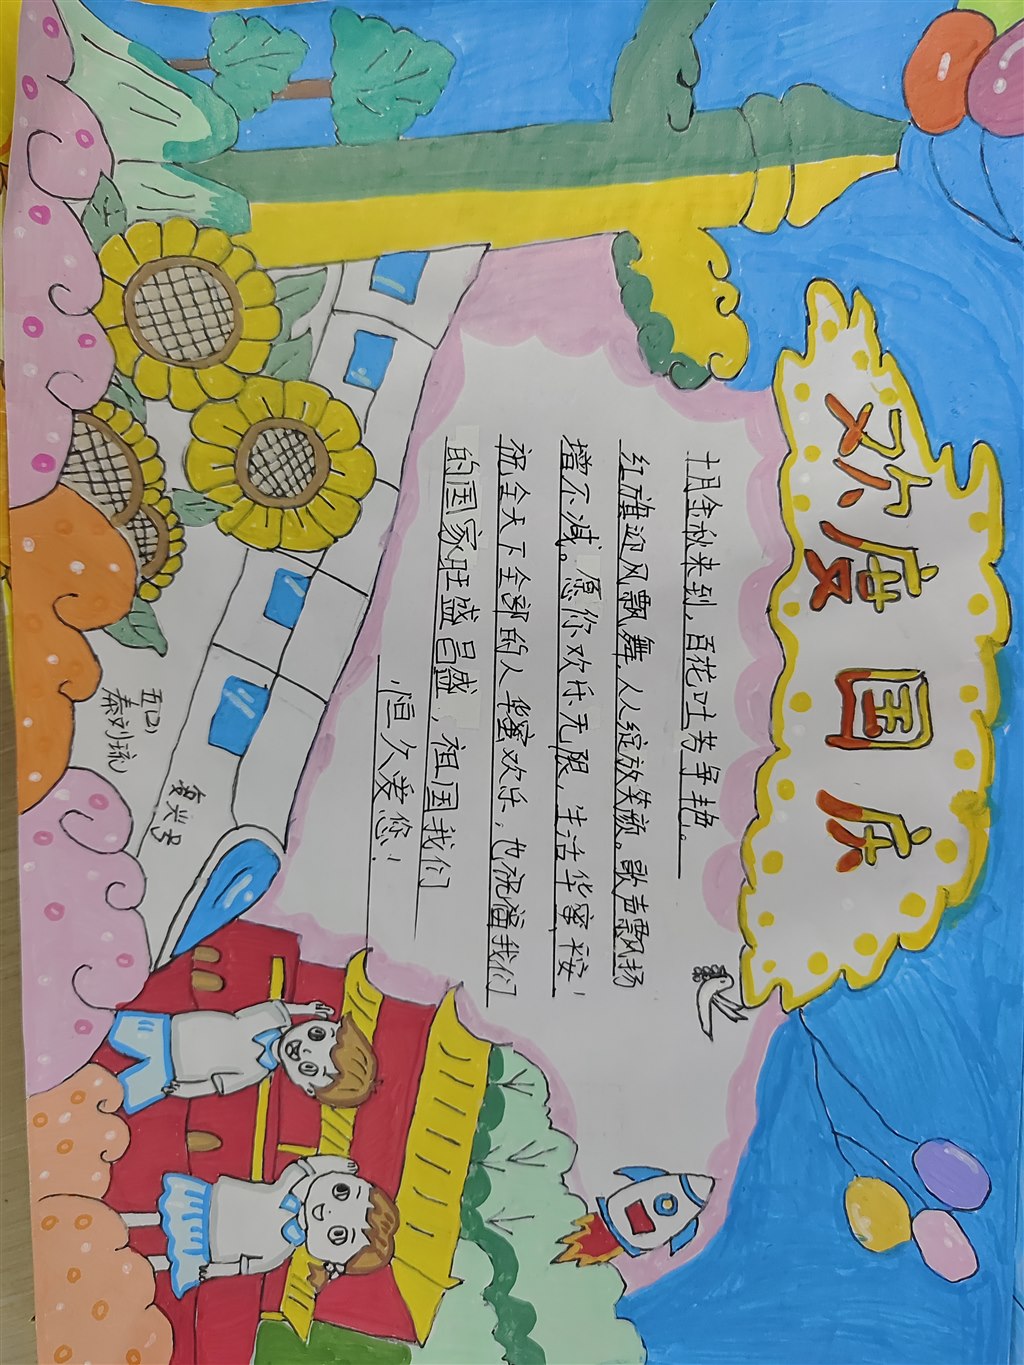 欢度国庆
十月金秋来到，百花吐芳争艳。
红旗迎风飘舞，人人绽放笑颜。歌声飘扬
增不减。愿你欢乐无限，生活华蜜平安！
祝全天下全部的人华蜜欢乐；也祝福我们
的国家旺盛昌盛，祖国我们
恒久爱您！
复兴号
五(3)
秦刘琉